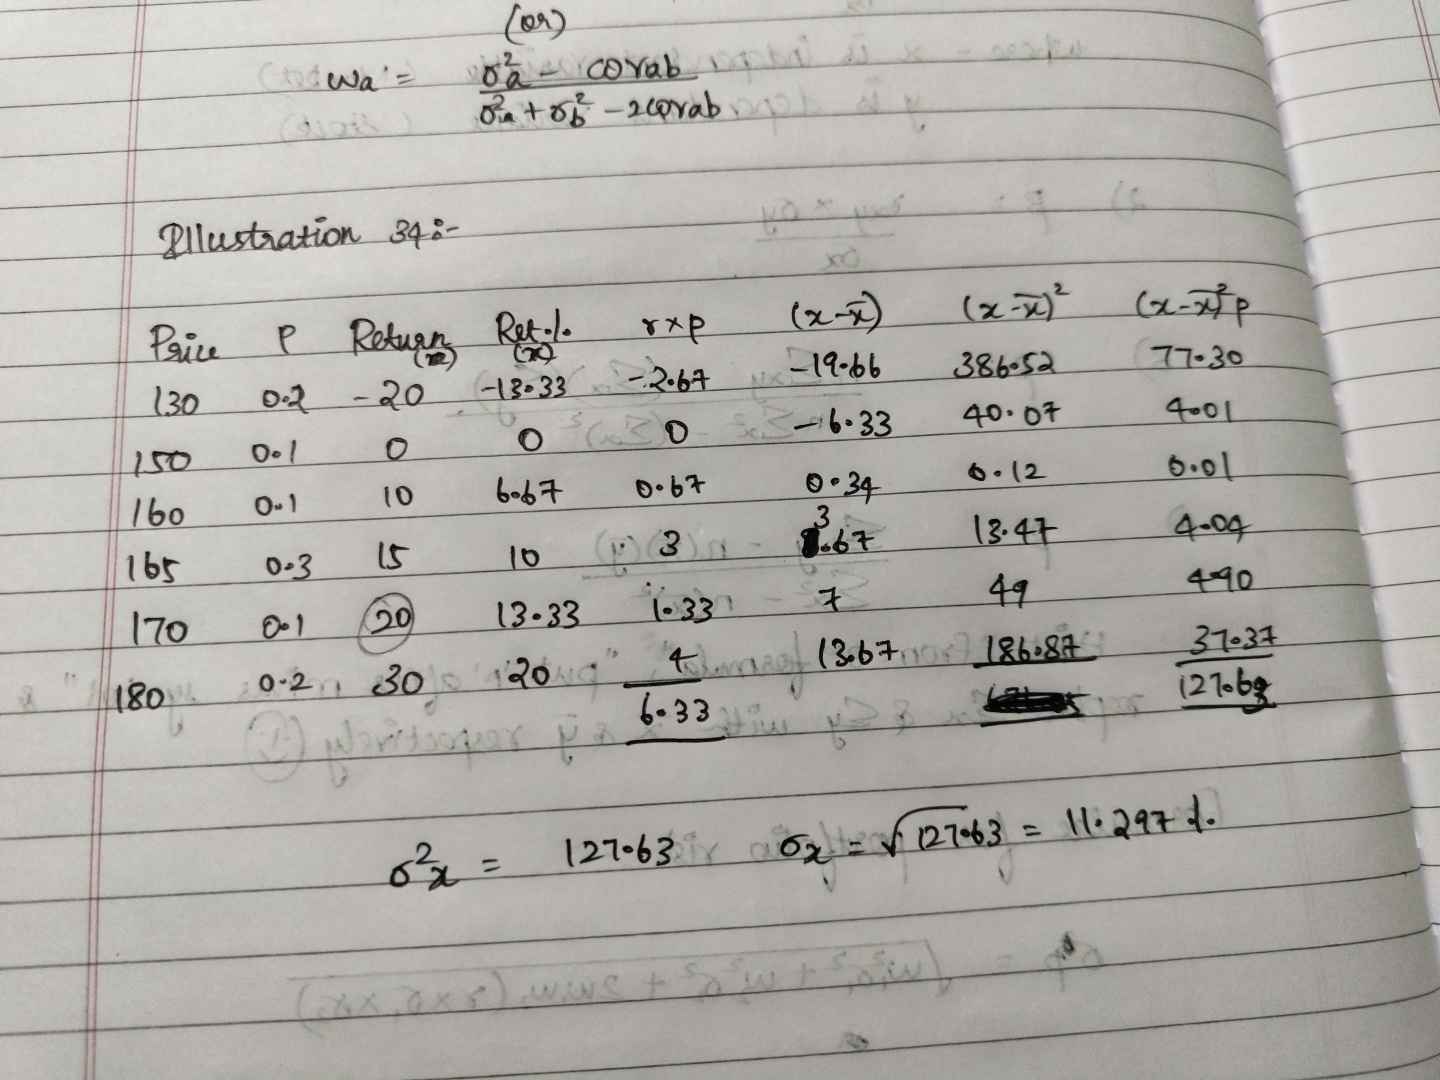 (or)
wa = σ²a - covab
σ²a + σb² - 2covab
Illustration 34:-
Price P Return Ret.% r×p (x-x̄) (x-x̄)² (x-x̄)²p
(x)
130 0.2 -20 -13.33 -2.67 -19.66 386.52 77.30
150 0.1 0 0 0 -6.33 40.07 4.01
160 0.1 10 6.67 0.67 0.34 0.12 0.01
165 0.3 15 10 3 3.67 13.47 4.04
170 0.1 20 13.33 1.33 7 49 4.90
180 0.2 30 20 4 13.67 186.87 37.37
6.33 127.63
σ²x = 127.63 σx = √127.63 = 11.297 %.